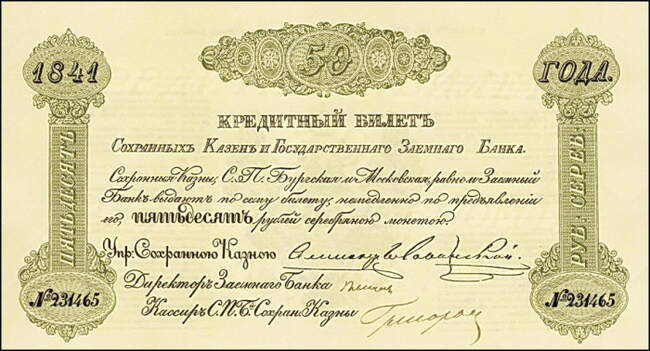 50
1841 ГОДА.
КРЕДИТНЫЙ БИЛЕТЪ
СОХРАННЫХЪ КАЗЕНЪ И ГОСУДАРСТВЕННАГО ЗАЕМНАГО БАНКА.
Сохранныя Казны, С.П. Бургская и Московская, равно и Заемный
Банкъ выдаютъ по сему билету, немедленно по предъявленіи
его, ПЯТЬДЕСЯТЪ рублей серебряною монетою.
Упр: Сохранною Казною
Директоръ Заемнаго Банка
Кассиръ С.П.Б. Сохран. Казны
ПЯТЬДЕСЯТЪ
РУБ: СЕРЕБ:
№231465 №231465